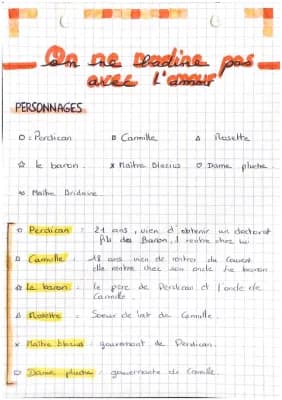 On ne badine pas
avec l'amour
PERSONNAGES
o : Perdican
□ Camille
△ Rosette
☆ le baron
x Maître Blazius
♡ Dame pluche
~ Maître Bridaine
o Perdican : 21 ans, vien d'obtenir un doctorat
fils des Baron, rentre chez lui
□ Camille : 18 ans vien de rentrer du Couvent
elle rentre chez son oncle le baron
☆ Le baron : le pere de Perdican et l'oncle de
Camille
△ Rosette : Soeur de lait de Camille.
x Maître blazius : gouvernant de Perdican.
♡ Dame pluche : gouvernante de Camille.